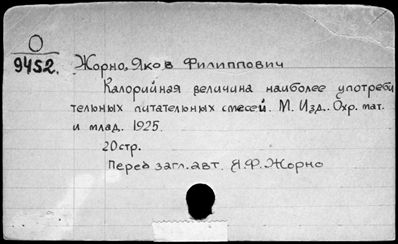 О
9452.
Жорно, Яков Филиппович
Калорийная величина наиболее употреби
тельных питательных смесей. М. Изд. Охр. мат.
и млад. 1925.
20 стр.
Перед загл. авт. Я.Ф. Жорно